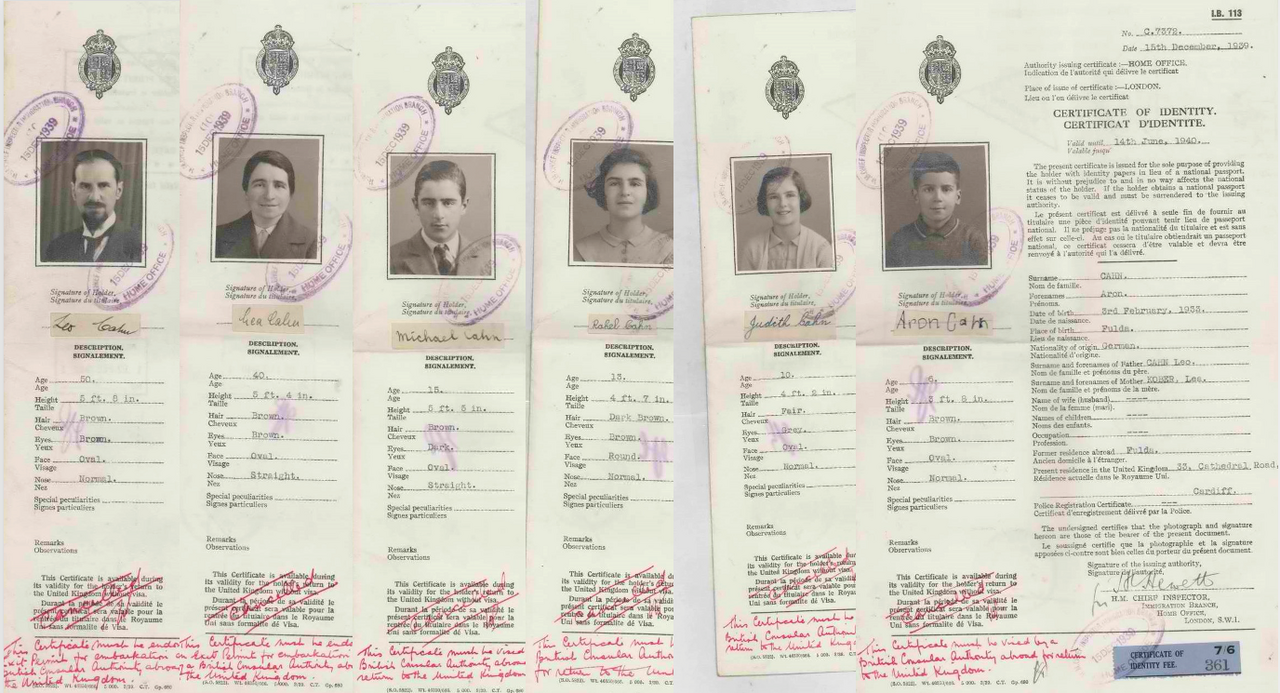 Signature of Holder,
Signature du titulaire,
Leo Cahn
DESCRIPTION.
SIGNALEMENT.
Age 50.
Age
Height 5 ft. 8 in.
Taille
Hair Brown.
Cheveux
Eyes Brown.
Yeux
Face Oval.
Visage
Nose Normal.
Nez
Special peculiarities
Signes particuliers
Remarks
Observations
This Certificate is available during
its validity for the holder's return to
the United Kingdom without visa.
Durant la période de sa validité le
présent certificat sera valable pour la
rentrée du titulaire dans le Royaume
Uni sans formalité de Visa.
Signature of Holder,
Signature du titulaire,
Lea Cahn
DESCRIPTION.
SIGNALEMENT.
Age 40.
Age
Height 5 ft. 4 in.
Taille
Hair Brown.
Cheveux
Eyes Brown.
Yeux
Face Oval.
Visage
Nose Straight.
Nez
Special peculiarities
Signes particuliers
Remarks
Observations
This Certificate is available during
its validity for the holder's return to
the United Kingdom without visa.
Durant la période de sa validité le
présent certificat sera valable pour la
rentrée du titulaire dans le Royaume
Uni sans formalité de Visa.
Signature of Holder,
Signature du titulaire,
Michael Cahn
DESCRIPTION.
SIGNALEMENT.
Age 15.
Age
Height 5 ft. 5 in.
Taille
Hair Brown.
Cheveux
Eyes Dark.
Yeux
Face Oval.
Visage
Nose Straight.
Nez
Special peculiarities
Signes particuliers
Remarks
Observations
This Certificate is available during
its validity for the holder's return to
the United Kingdom without visa.
Durant la période de sa validité le
présent certificat sera valable pour la
rentrée du titulaire dans le Royaume
Uni sans formalité de Visa.
This Certificate must be visaed
British Consular Authority abroad
return to the United Kingdom
Signature of Holder,
Signature du titulaire,
Rahel Cahn
DESCRIPTION.
SIGNALEMENT.
Age 13.
Age
Height 4 ft. 7 in.
Taille
Hair Dark Brown.
Cheveux
Eyes Brown.
Yeux
Face Round.
Visage
Nose Normal.
Nez
Special peculiarities
Signes particuliers
Remarks
Observations
This Certificate must
British Consular Author
for return to the Un
Signature of Holder,
Signature du titulaire,
Judith Cahn
DESCRIPTION.
SIGNALEMENT.
Age 10.
Age
Height 4 ft. 2 in.
Taille
Hair Fair.
Cheveux
Eyes Grey.
Yeux
Face Oval.
Visage
Nose Normal.
Nez
Special peculiarities
Signes particuliers
Remarks
Observations
This Certificate must
British Consular
return to the
Signature of Holder,
Signature du titulaire,
Aron Cahn
DESCRIPTION.
SIGNALEMENT.
Age 6.
Age
Height 3 ft. 8 in.
Taille
Hair Brown.
Cheveux
Eyes Brown.
Yeux
Face Oval.
Visage
Nose Normal.
Nez
Special peculiarities
Signes particuliers
Remarks
Observations
This Certificate is available during
its validity for the holder's return to
the United Kingdom without visa.
Durant la période de sa validité le
présent certificat sera valable pour la
rentrée du titulaire dans le Royaume
Uni sans formalité de Visa.
This Certificate must be visaed by a
British Consular Authority abroad for return
to the United Kingdom.
I.B. 113
No. C.7372.
Date 15th December, 1939.
Authority issuing certificate :—HOME OFFICE.
Indication de l'autorité qui délivre le certificat
Place of issue of certificate :—LONDON.
Lieu ou l'on délivre le certificat
CERTIFICATE OF IDENTITY.
CERTIFICAT D'IDENTITE.
Valid until 14th June, 1940.
Valable jusqu'
The present certificate is issued for the sole purpose of providing
the holder with identity papers in lieu of a national passport.
It is without prejudice to and in no way affects the national
status of the holder. If the holder obtains a national passport
it ceases to be valid and must be surrendered to the issuing
authority.
Le présent certificat est délivré à seule fin de fournir au
titulaire une pièce d'identité pouvant tenir lieu de passeport
national. Il ne préjuge pas la nationalité du titulaire et est sans
effet sur celle-ci. Au cas où le titulaire obtiendrait un passeport
national, ce certificat cessera d'être valable et devra être
renvoyé à l'autorité qui l'a délivré.
Surname CAHN.
Nom de famille.
Forenames Aron.
Prénoms.
Date of birth 3rd February, 1933.
Date de naissance.
Place of birth Fulda.
Lieu de naissance.
Nationality of origin German.
Nationalité d'origine.
Surname and forenames of Father CAHN Leo.
Nom de famille et prénoms du père.
Surname and forenames of Mother KOBER, Lea.
Nom de famille et prénoms de la mère.
Name of wife (husband) ----
Nom de la femme (mari).
Names of children ----
Noms des enfants.
Occupation ----
Profession.
Former residence abroad Fulda.
Ancien domicile à l'étranger.
Present residence in the United Kingdom 33, Cathedral Road,
Résidence actuelle dans le Royaume Uni.
Cardiff.
Police Registration Certificate ---
Certificat d'enregistrement délivré par la Police.
The undersigned certifies that the photograph and signature
hereon are those of the bearer of the present document.
Le soussigné certifie que la photographie et la signature
apposées ci-contre sont bien celles du porteur du présent document.
Signature of the issuing authority,
Hewett
H.M. CHIEF INSPECTOR,
IMMIGRATION BRANCH,
HOME OFFICE,
LONDON, S.W.1.
CERTIFICATE OF
IDENTITY FEE.
7/6
361